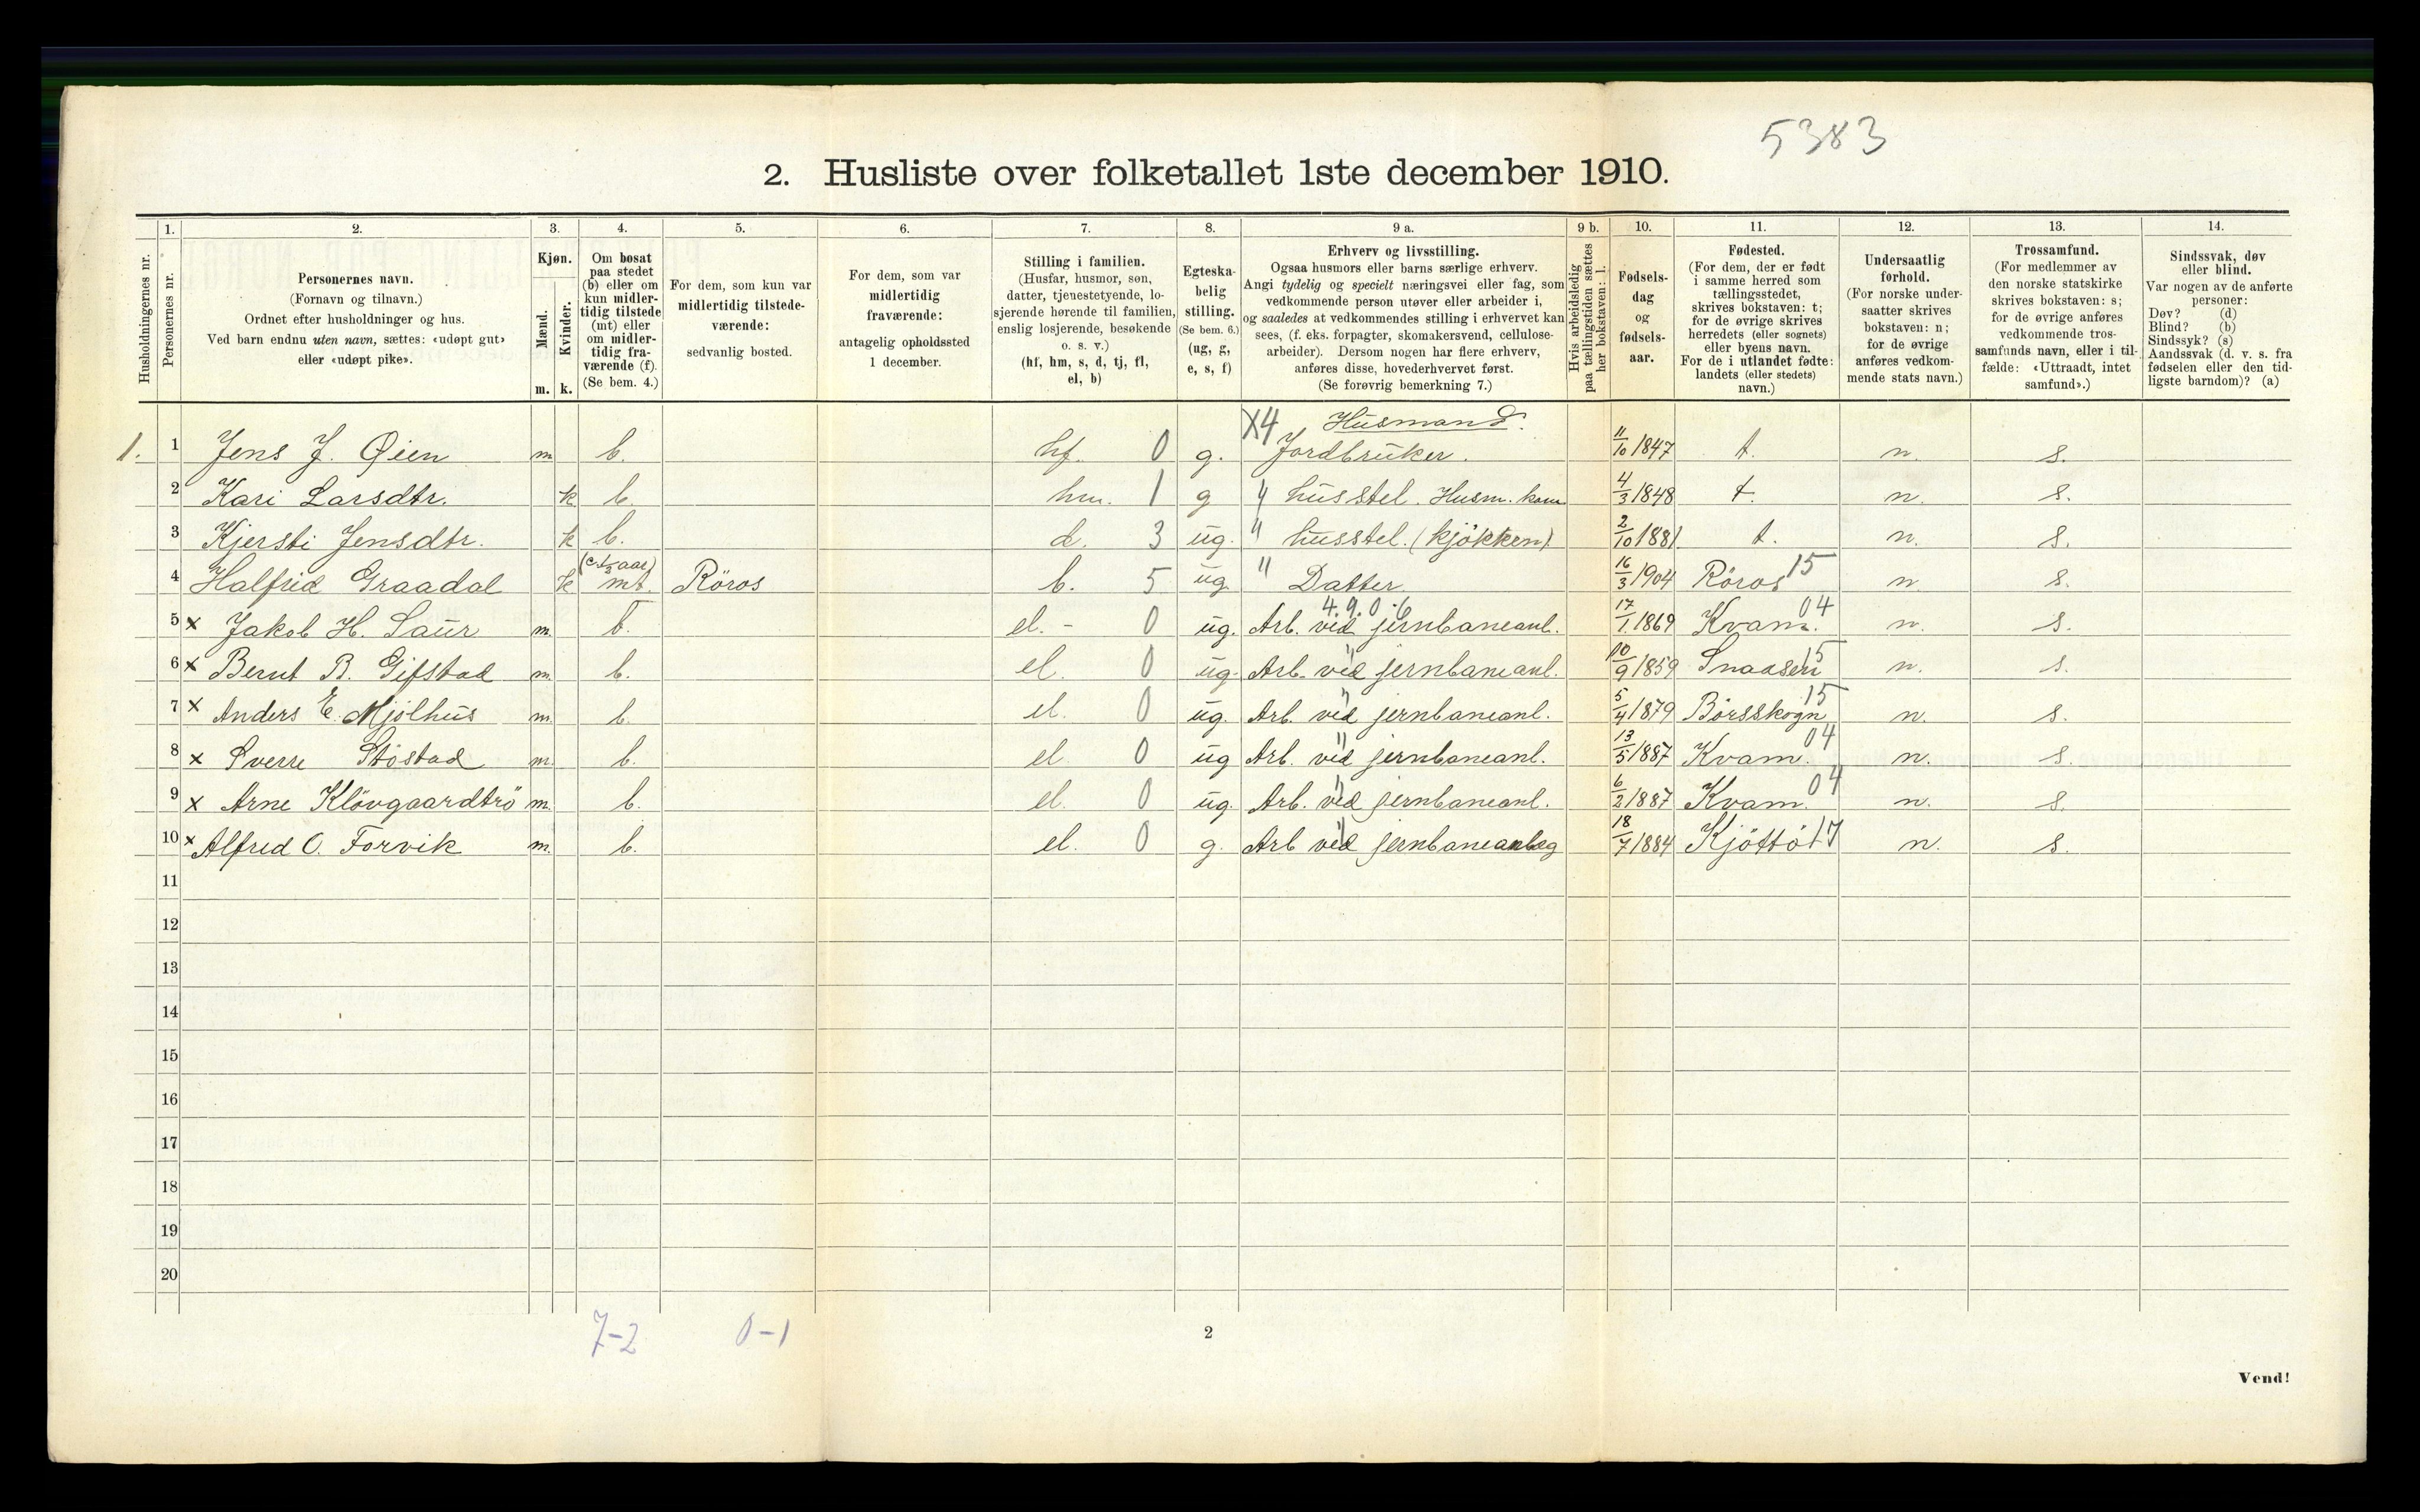 5383
2. Husliste over folketallet 1ste december 1910.
Husholdningernes nr.
1. Personernes nr.
2. Personernes navn. (Fornavn og tilnavn.) Ordnet efter husholdninger og hus. Ved barn endnu uten navn, sættes: «udøpt gut» eller «udøpt pike».
3. Kjøn. Mænd. m. Kvinder. k.
4. Om bosat paa stedet (b) eller om kun midlertidig tilstede (mt) eller om midlertidig fraværende (f). (Se bem. 4.)
5. For dem, som kun var midlertidig tilstedeværende: sedvanlig bosted.
6. For dem, som var midlertidig fraværende: antagelig opholdssted 1 december.
7. Stilling i familien. (Husfar, husmor, søn, datter, tjenestetyende, losjerende hørende til familien, enslig losjerende, besøkende o. s. v.) (hf, hm, s, d, tj, fl, el, b)
8. Egteskabelig stilling. (Se bem. 6.) (ug, g, e, s, f)
9 a. Erhverv og livsstilling. Ogsaa husmors eller barns særlige erhverv. Angi tydelig og specielt næringsvei eller fag, som vedkommende person utøver eller arbeider i, og saaledes at vedkommendes stilling i erhvervet kan sees, (f. eks. forpagter, skomakersvend, cellulosearbeider). Dersom nogen har flere erhverv, anføres disse, hovederhvervet først. (Se forøvrig bemerkning 7.)
9 b. Hvis arbeidsledig paa tællingstiden sættes her bokstaven: l.
10. Fødselsdag og fødselsaar.
11. Fødested. (For dem, der er født i samme herred som tællingsstedet, skrives bokstaven: t; for de øvrige skrives herredets (eller sognets) eller byens navn. For de i utlandet fødte: landets (eller stedets) navn.)
12. Undersaatlig forhold. (For norske undersaatter skrives bokstaven: n; for de øvrige anføres vedkommende stats navn.)
13. Trossamfund. (For medlemmer av den norske statskirke skrives bokstaven: s; for de øvrige anføres vedkommende trossamfunds navn, eller i tilfælde: «Uttraadt, intet samfund».)
14. Sindssvak, døv eller blind. Var nogen av de anførte personer: Døv? (d) Blind? (b) Sindssyk? (s) Aandssvak (d. v. s. fra fødselen eller den tidligste barndom)? (a)
X4 Husmand.
1. 1 Jens J. Øien m b. hf. 0 g. Jordbruker. 11/10 1847 t. n. s.
2 Kari Larsdtr. k b. hm. 1 g " husstel. Husm. kone 4/3 1848 t. n. s.
3 Kjersti Jensdtr. k b. d. 3 ug. " husstel. (kjøkken) 2/10 1881 t. n. s.
4 Halfrid Graadal k mt. Röros b. 5 ug " Datter 16/3 1904 Röros 15 n. s.
4.9.0.6
5 x Jakob H. Saur m. b. el. - 0 ug. Arb. ved jernbaneanl. 17/1 1869 Kvam. 04 n. s.
6 x Bernt B. Gifstad m b. el. 0 ug. Arb. ved jernbaneanl. 10/9 1859 Snaasen 15 n. s.
7 x Anders E. Mjölhus m. b. el. 0 ug. Arb. ved jernbaneanl. 5/4 1879 Börsskogn 15 n. s.
8 x Sverre Stöstad m. b. el. 0 ug Arb. ved jernbaneanl. 13/5 1887 Kvam. 04 n. s.
9 x Arne Klövgaardtrö m. b. el. 0 ug. Arb. ved jernbaneanl. 6/2 1887 Kvam. 04 n. s.
10 x Alfred O. Forvik m. b. el. 0 g. Arb ved jernbaneanlæg 18/7 1884 Kjöttö 17 n. s.
11
12
13
14
15
16
17
18
19
20
7-2 0-1
2
Vend!